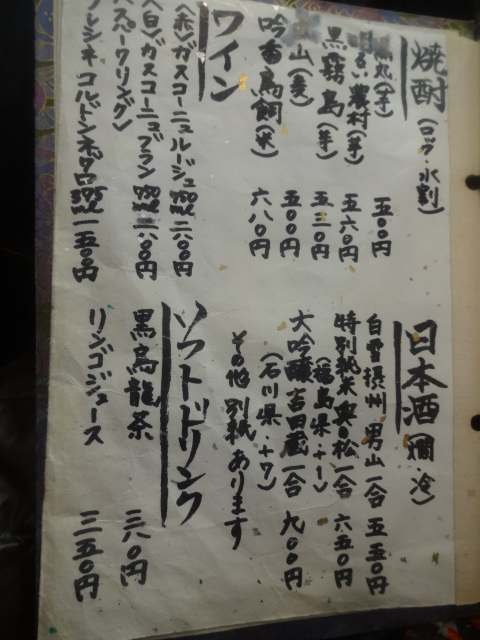 焼酎(ロック・水割)
丸(芋) 五〇〇円
るい農村(芋) 五六〇円
黒霧島(芋) 五三〇円
山(麦) 五〇〇円
吟香鳥飼(米) 六八〇円
ワイン
〈赤〉ガスコーニュルージュ 750ml 二八〇〇円
〈白〉ガスコーニュブラン 750ml 二八〇〇円
〈スパークリング〉
375ml 一五〇〇円
日本酒(燗・冷)
白雪摂州男山一合 五五〇円
特別純米奥の松一合 六五〇円
(福島県・+1)
大吟醸吉田蔵一合 九〇〇円
(石川県・+7)
その他別紙あります
ソフトドリンク
黒烏龍茶 三八〇円
リンゴジュース 三五〇円